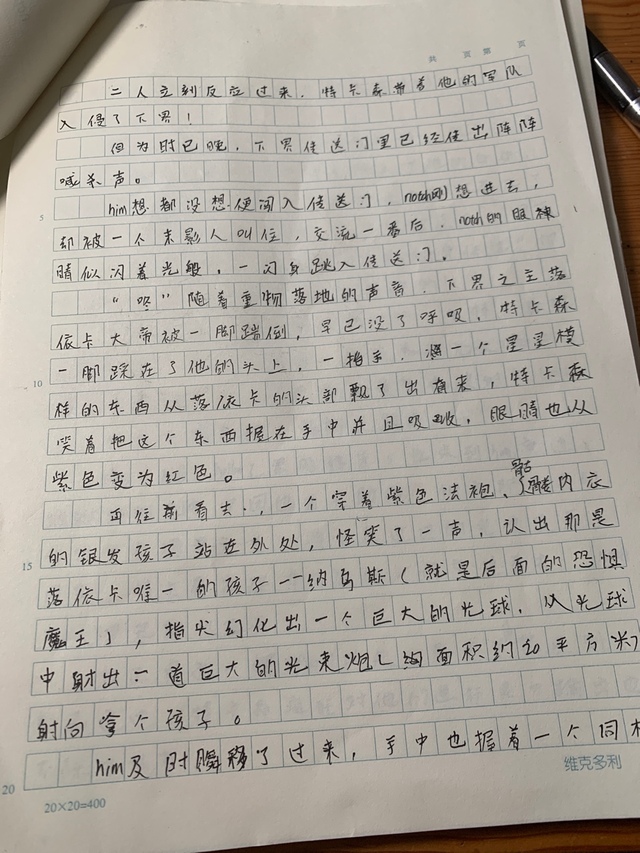 共 页 第 页
二人立刻反应过来，特卡森带着他的军队
入侵了下界！
但为时已晚，下界传送门里已经传出阵阵
喊杀声。
him想都没想便闯入传送门，notch刚想进去，
却被一个末影人叫住，交流一番后，notch的眼神
睛似闪着光般，一闪身跳入传送门。
“咚”随着重物落地的声音，下界之主落
依卡大帝被一脚踹倒，早已没了呼吸，特卡森
一脚踩在了他的头上，一抬手，一个星星模
样的东西从落依卡的头部飘了出来，特卡森
笑着把这个东西握在手中并且吸收，眼睛也从
紫色变为红色。
再往前看去，一个穿着紫色法袍、骷髅内衣
的银发孩子站在外处，怪笑了一声，认出那是
落依卡唯一的孩子——纳乌斯（就是后面的恐惧
魔王），指尖幻化出一个巨大的光球，从光球
中射出一道巨大的光束炮（约面积约20平方米）
射向拿个孩子。
him及时瞬移了过来，手中也握着一个同样
5
10
15
20
20×20=400
维克多利